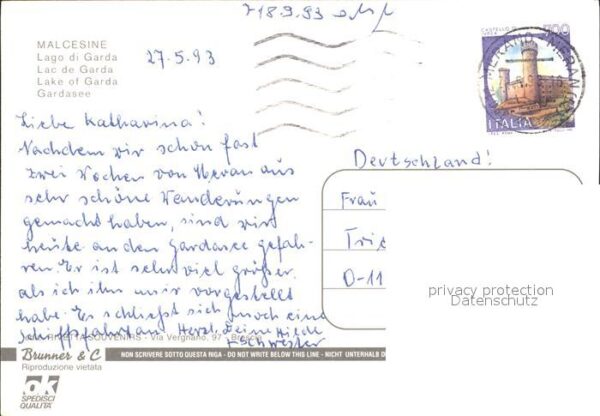 718.9.93
MALCESINE
Lago di Garda
Lac de Garda
Lake of Garda
Gardasee
27.5.93
CASTELLO DI
700
MERANO MERAN
ITALIA
Liebe Katharina!
Nachdem wir schon fast
zwei Wochen von Meran aus
sehr schöne Wanderungen
gemacht haben, sind wir
heute an den Gardasee gefah-
ren. Er ist sehr viel größer
als ich ihn mir vorgestellt
habe. Es schließt sich noch eine
Schiffsfahrt an. Herzl. Deine Hilde
+ Schwester
Deutschland!
Frau
Trie
D-11
privacy protection
Datenschutz
SOUVENIRS - Via Vergnano, 97 - Brescia
Brunner & C
NON SCRIVERE SOTTO QUESTA RIGA - DO NOT WRITE BELOW THIS LINE - NICHT UNTERHALB D
Riproduzione vietata
ok
SPEDISCI
QUALITA'